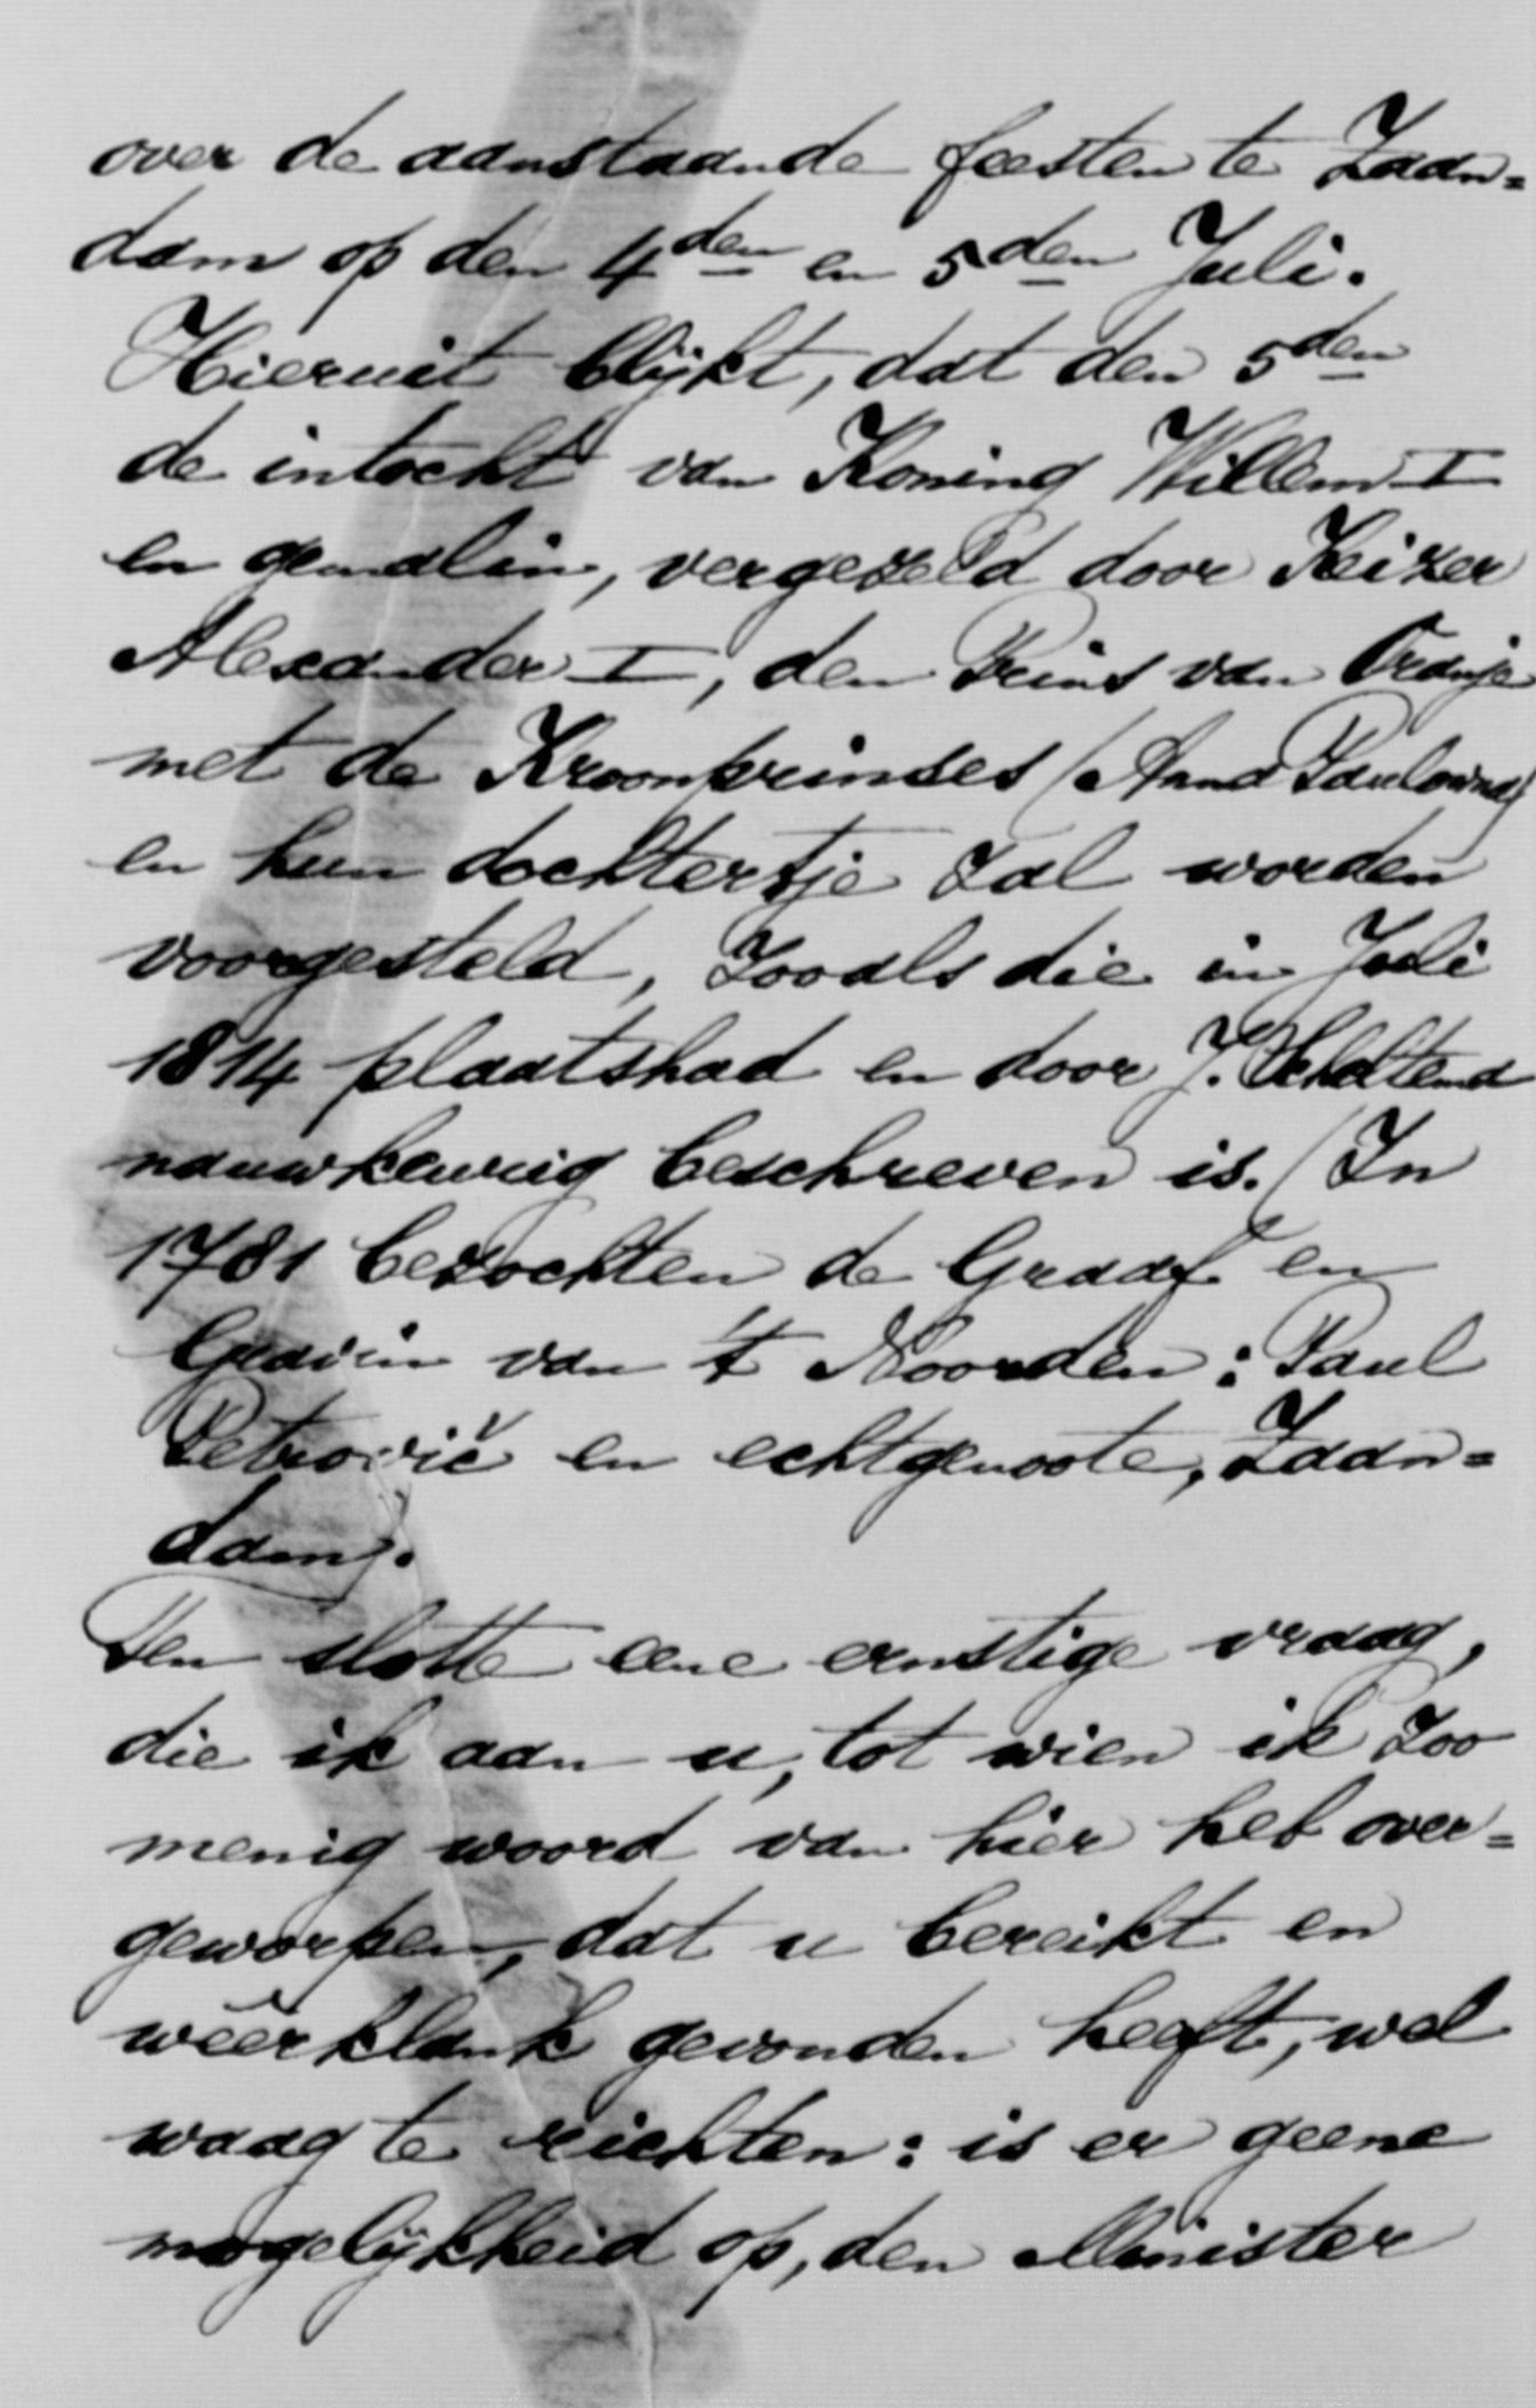 over de aanstaande feesten te Zaan=
dam op den 4den en 5den Juli.
Hieruit blijkt, dat den 5den
de intocht van Koning Willem I
en gemalin, vergezeld door Keizer
Alexander I, den Prins van Oranje
met de Kroonprinses (Anna Paulowna)
en hun dochtertje zal worden
voorgesteld, zooals die in Juli
1814 plaatshad en door J. Scheltema
nauwkeurig beschreven is. (In
1781 bezochten de Graaf en
Gravin van 't Noorden: Paul
Petrovič en echtgenoote, Zaan=
dam).
Ten slotte eene ernstige vraag,
die ik aan u, tot wien ik zoo
menig woord van hier heb over=
geworpen, dat u bereikt en
wêerklank gevonden heeft, wel
waag te richten: is er geene
mogelijkheid op, den Minister